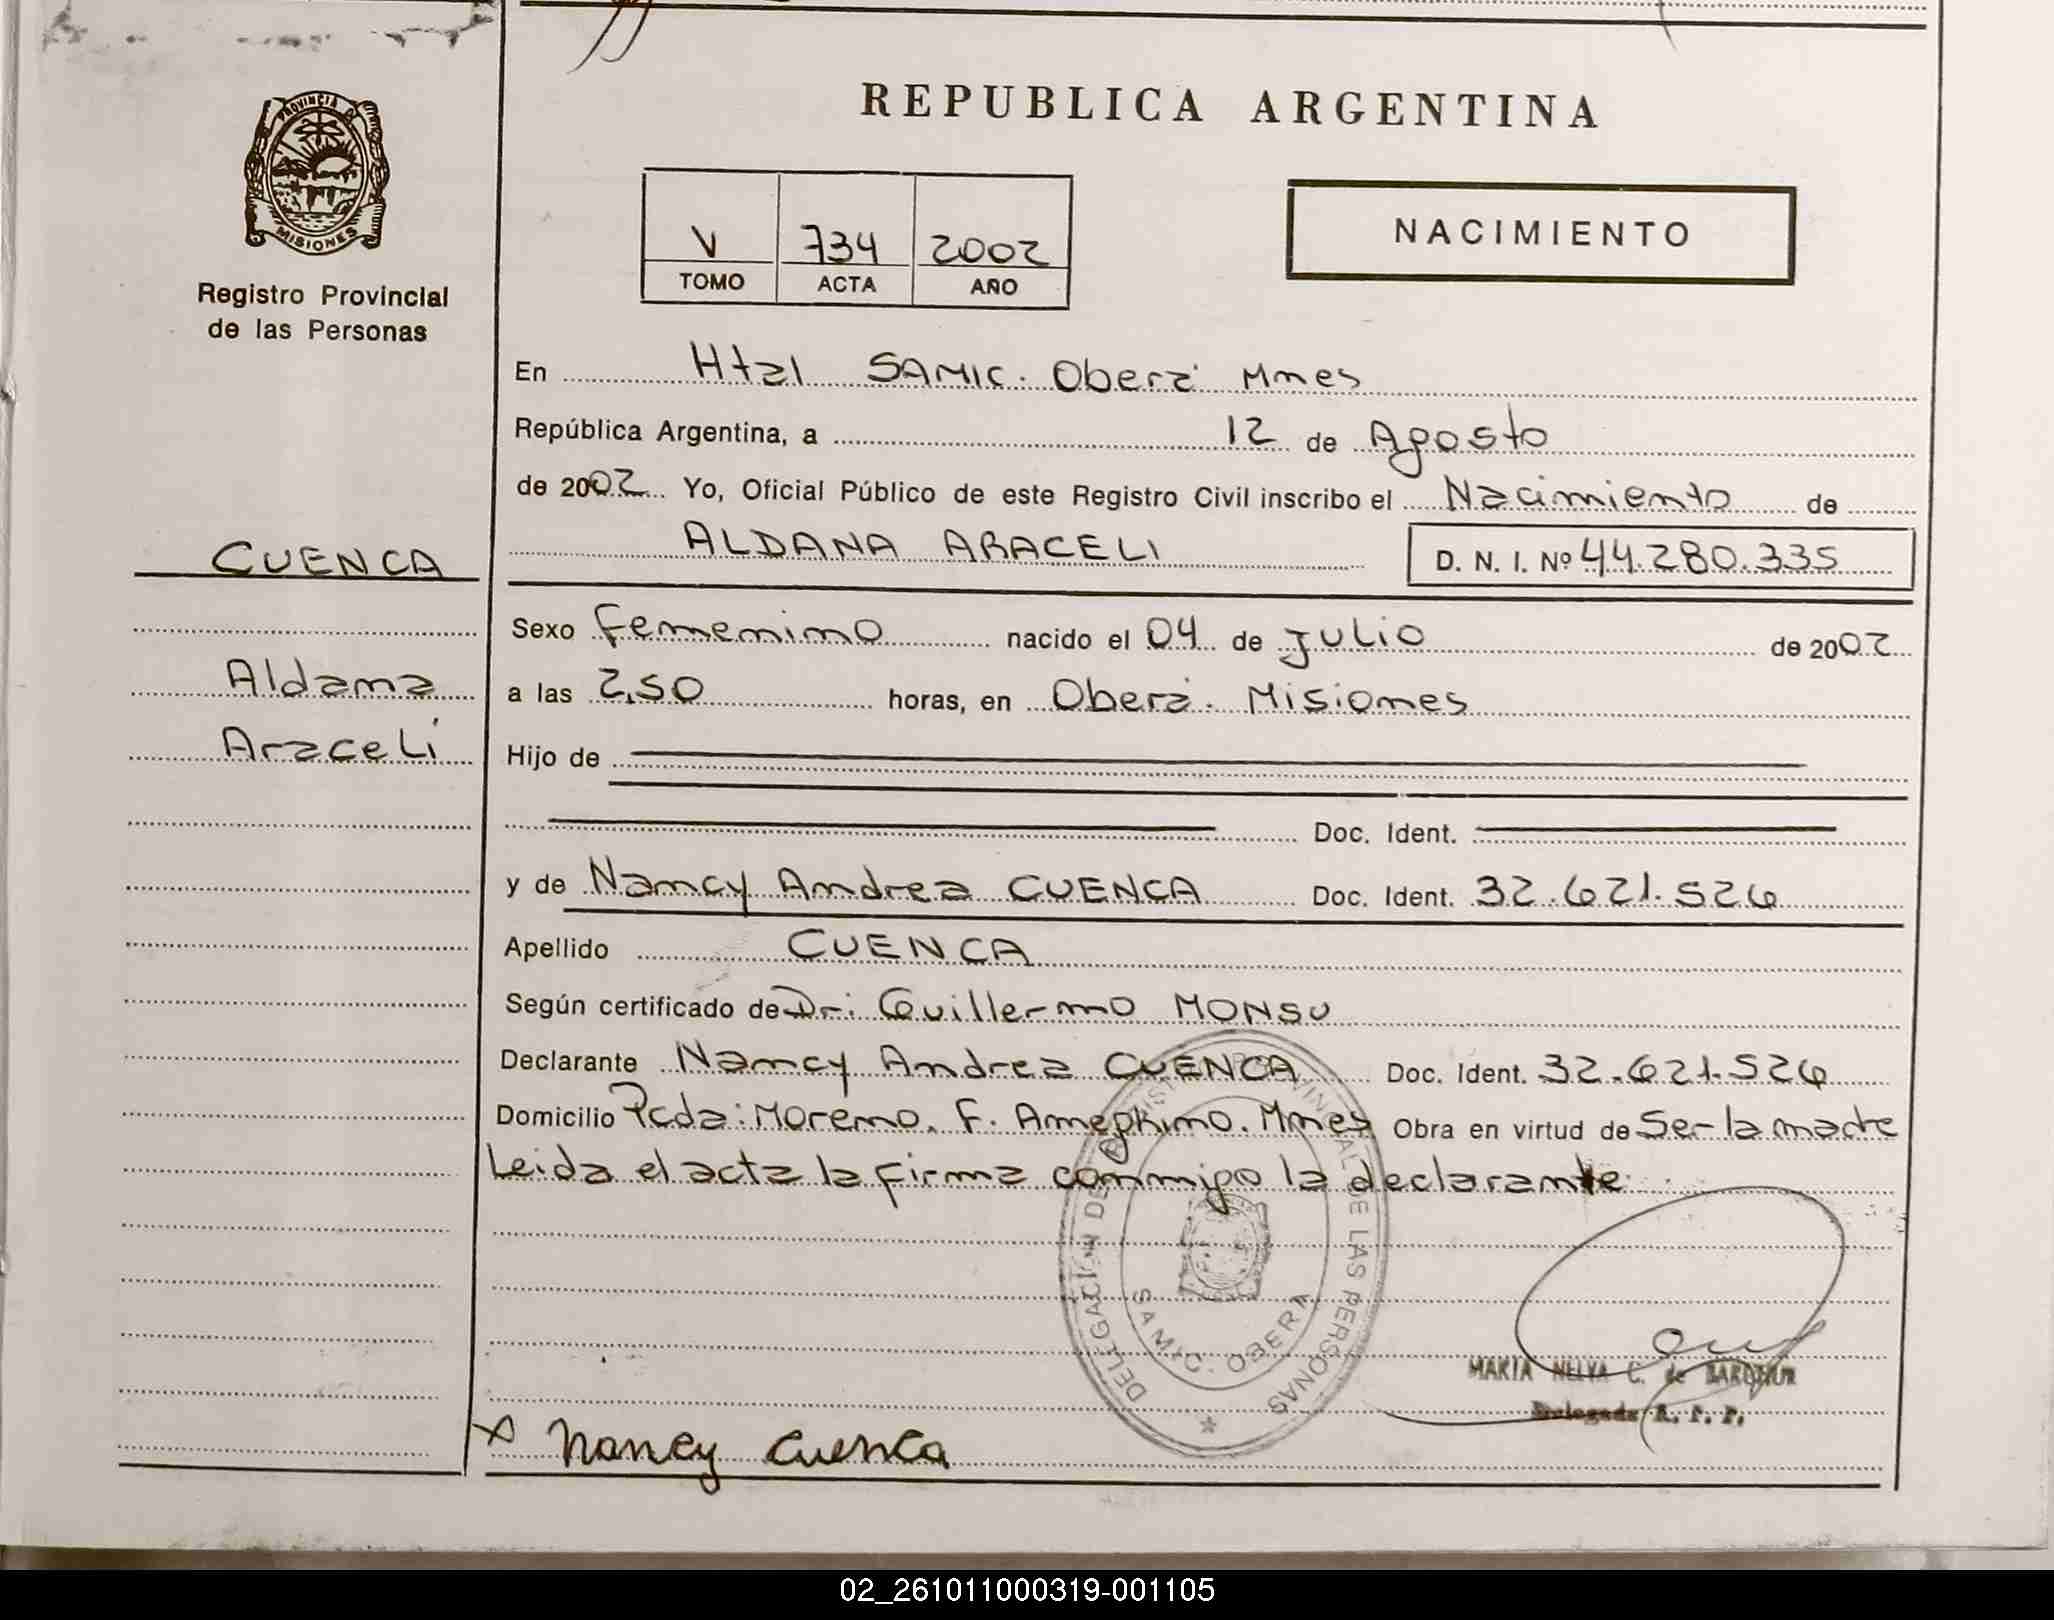 REPUBLICA ARGENTINA
PROVINCIA DE
MISIONES
Registro Provincial
de las Personas
V 734 2002
TOMO ACTA AÑO
NACIMIENTO
En Htal SAMIC. Oberá Mnes
República Argentina, a 12 de Agosto
de 2002 Yo, Oficial Público de este Registro Civil inscribo el Nacimiento de
ALDANA ARACELI D. N. I. Nº 44.280.335
CUENCA
Aldana
Araceli
Sexo Femenino nacido el 04 de JULIO de 2002
a las 2,50 horas, en Oberá. Misiones
Hijo de
Doc. Ident.
y de Nancy Andrea CUENCA Doc. Ident. 32.621.526
Apellido CUENCA
Según certificado de Dr: Guillermo MONSU
Declarante Nancy Andrea CUENCA Doc. Ident. 32.621.526
Domicilio Pcda: Moreno. F. Ameghino. Mnes Obra en virtud de Ser la madre
Leida el acta la firma conmigo la declarante
DELEGACION DE REGISTRO PROVINCIAL DE LAS PERSONAS
SAMIC. OBERA
MARIA NELVA C. de
Delegada R. P. P.
x Nancy Cuenca
02_261011000319-001105